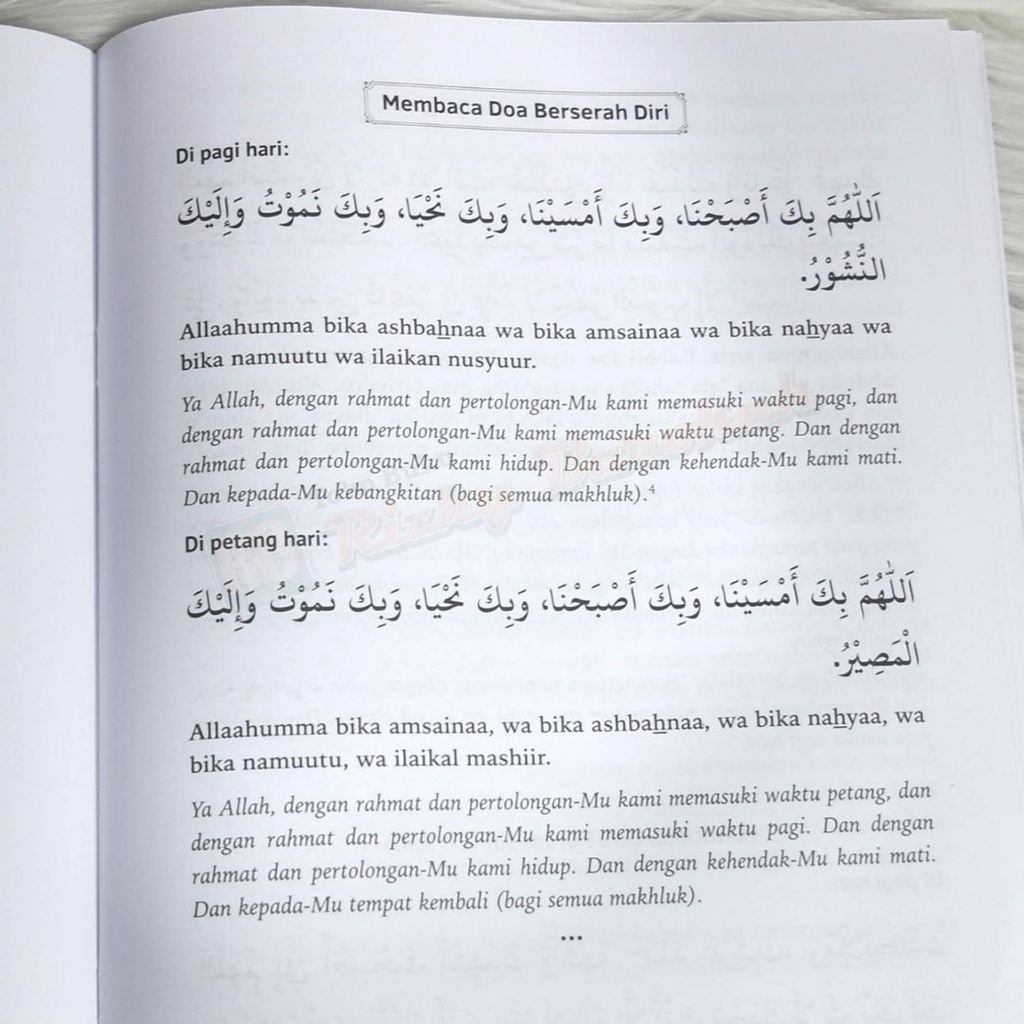 Membaca Doa Berserah Diri
Di pagi hari:
اَللّٰهُمَّ بِكَ أَصْبَحْنَا، وَبِكَ أَمْسَيْنَا، وَبِكَ نَحْيَا، وَبِكَ نَمُوْتُ وَإِلَيْكَ
النُّشُوْرُ.
Allaahumma bika ashbahnaa wa bika amsainaa wa bika nahyaa wa
bika namuutu wa ilaikan nusyuur.
Ya Allah, dengan rahmat dan pertolongan-Mu kami memasuki waktu pagi, dan
dengan rahmat dan pertolongan-Mu kami memasuki waktu petang. Dan dengan
rahmat dan pertolongan-Mu kami hidup. Dan dengan kehendak-Mu kami mati.
Dan kepada-Mu kebangkitan (bagi semua makhluk).⁴
Di petang hari:
اَللّٰهُمَّ بِكَ أَمْسَيْنَا، وَبِكَ أَصْبَحْنَا، وَبِكَ نَحْيَا، وَبِكَ نَمُوْتُ وَإِلَيْكَ
الْمَصِيْرُ.
Allaahumma bika amsainaa, wa bika ashbahnaa, wa bika nahyaa, wa
bika namuutu, wa ilaikal mashiir.
Ya Allah, dengan rahmat dan pertolongan-Mu kami memasuki waktu petang, dan
dengan rahmat dan pertolongan-Mu kami memasuki waktu pagi. Dan dengan
rahmat dan pertolongan-Mu kami hidup. Dan dengan kehendak-Mu kami mati.
Dan kepada-Mu tempat kembali (bagi semua makhluk).
...